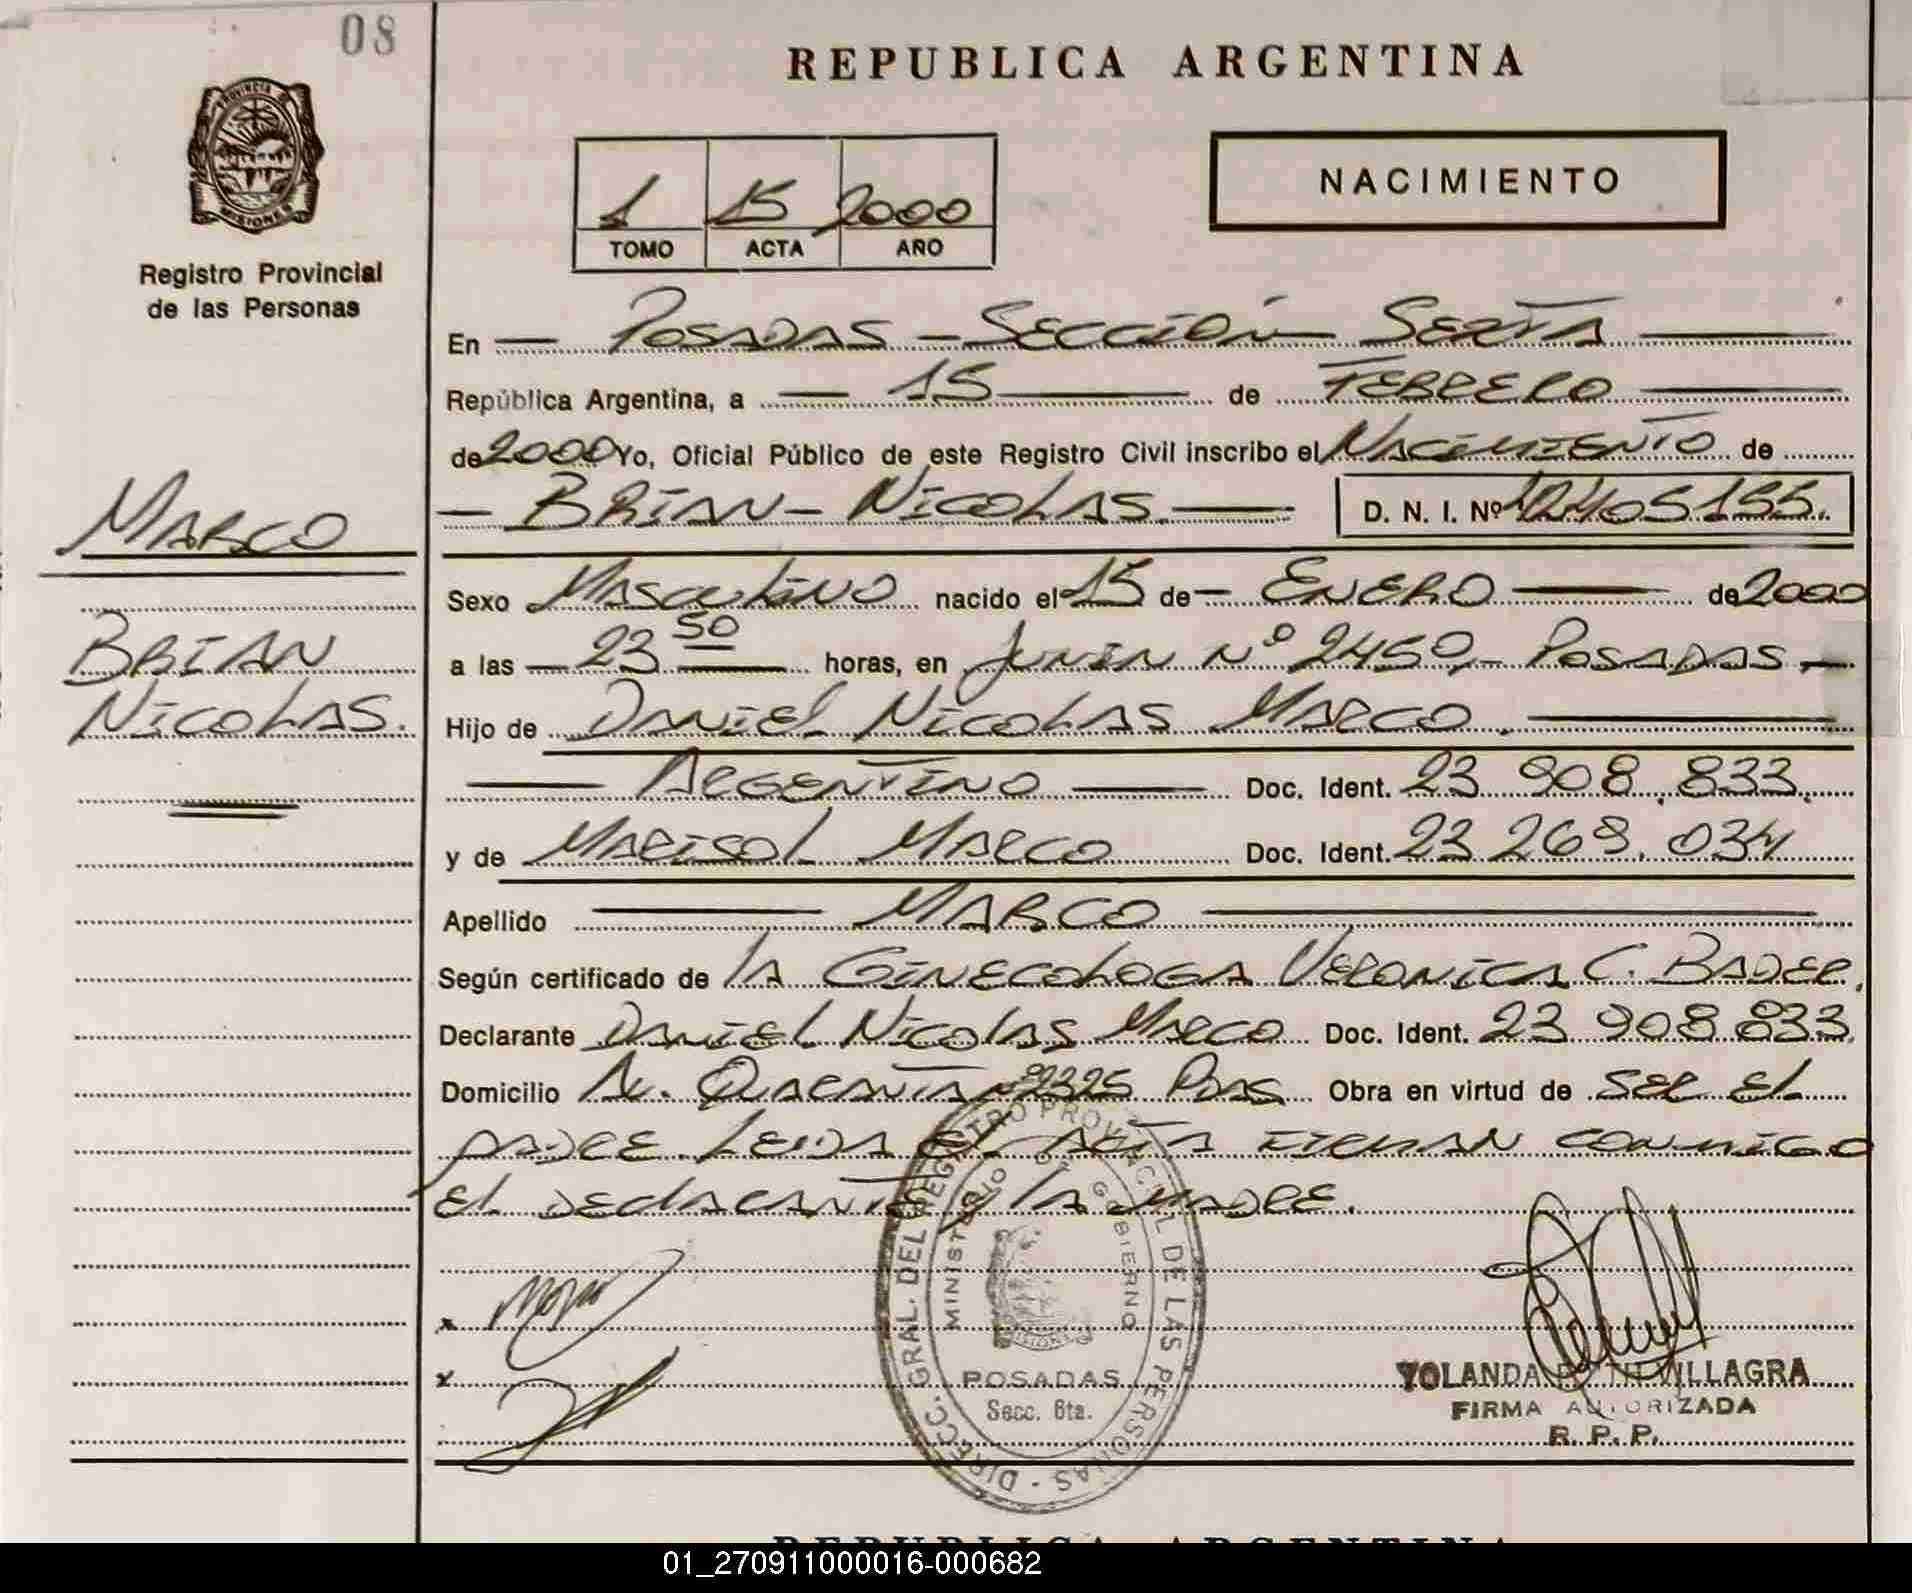 08
REPUBLICA ARGENTINA
PROVINCIA DE
MISIONES
Registro Provincial
de las Personas
1 15 2000
TOMO ACTA AÑO
NACIMIENTO
En — POSADAS — SECCIÓN SEXTA —
República Argentina, a — 15 — de FEBRERO —
de 2000 Yo, Oficial Público de este Registro Civil inscribo el NACIMIENTO de
— BRIAN — NICOLAS. — D. N. I. Nº 42405155.
MARCO
BRIAN
NICOLAS.
Sexo MASCULINO nacido el 15 de — ENERO — de 2000
a las — 23 50 — horas, en JUNIN Nº 2450, — POSADAS —
Hijo de DANIEL NICOLAS MARCO. —
— ARGENTINO — Doc. Ident. 23 908.833.
y de MARISOL MARCO Doc. Ident. 23 268.034
Apellido — MARCO —
Según certificado de LA GINECOLOGA VERONICA C. BADER.
Declarante DANIEL NICOLAS MARCO Doc. Ident. 23 908 833.
Domicilio AV. QUARANTA Nº 2325 PDAS Obra en virtud de SER EL
PADRE. LEIDA EL ACTA FIRMAN CONMIGO
EL DECLARANTE y LA MADRE.
DIRECC. GRAL. DEL REGISTRO PROVINCIAL DE LAS PERSONAS -
MINISTERIO DE GOBIERNO
MISIONES
POSADAS
Secc. 6ta.
x
x
YOLANDA VILLAGRA
FIRMA AUTORIZADA
R. P. P.
REPUBLICA ARGENTINA
01_270911000016-000682